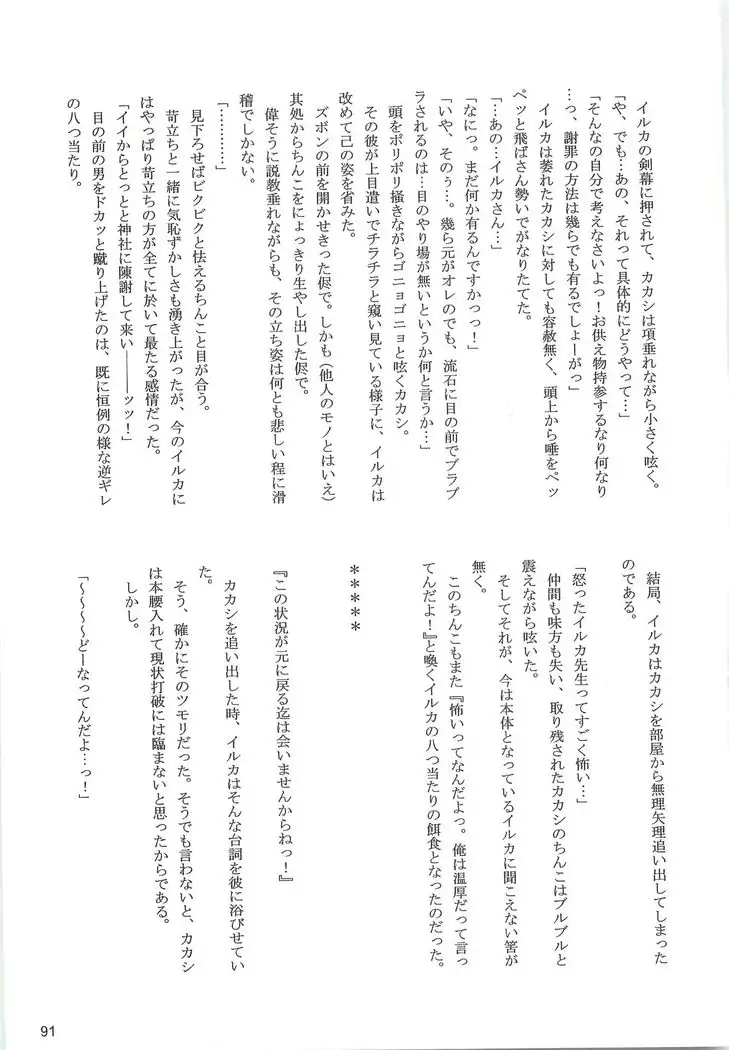 イルカの剣幕に押されて、カカシは項垂れながら小さく呟く。
「や、でも…あの、それって具体的にどうやって…」
「そんなの自分で考えなさいよっ！お供え物持参するなり何なり
…っ、謝罪の方法は幾らでも有るでしょーがっ」
イルカは萎れたカカシに対しても容赦無く、頭上から唾をペッ
ペッと飛ばさん勢いでがなりたてた。
「…あの…イルカさん…」
「なにっ。まだ何か有るんですかっっ！」
「いや、そのぅ…。幾ら元がオレのでも、流石に目の前でブラブ
ラされるのは…目のやり場が無いというか何と言うか…」
頭をポリポリ掻きながらゴニョゴニョと呟くカカシ。
その彼が上目遣いでチラチラと窺い見ている様子に、イルカは
改めて己の姿を省みた。
ズボンの前を開かせきった侭で。しかも（他人のモノとはいえ）
其処からちんこをにょっきり生やし出した侭で。
偉そうに説教垂れながらも、その立ち姿は何とも悲しい程に滑
稽でしかない。
「…………」
見下ろせばビクビクと怯えるちんこと目が合う。
苛立ちと一緒に気恥ずかしさも湧き上がったが、今のイルカに
はやっぱり苛立ちの方が全てに於いて最たる感情だった。
「イイからとっとと神社に陳謝して来い―――ッッ！」
目の前の男をドカッと蹴り上げたのは、既に恒例の様な逆ギレ
の八つ当たり。
結局、イルカはカカシを部屋から無理矢理追い出してしまった
のである。
「怒ったイルカ先生ってすごく怖い…」
仲間も味方も失い、取り残されたカカシのちんこはブルブルと
震えながら呟いた。
そしてそれが、今は本体となっているイルカに聞こえない筈が
無く。
このちんこもまた『怖いってなんだよっ。俺は温厚だって言っ
てんだよ！』と喚くイルカの八つ当たりの餌食となったのだった。
＊＊＊＊＊
『この状況が元に戻る迄は会いませんからねっ！』
カカシを追い出した時、イルカはそんな台詞を彼に浴びせてい
た。
そう、確かにそのツモリだった。そうでも言わないと、カカシ
は本腰入れて現状打破には臨まないと思ったからである。
しかし。
「～～～～どーなってんだよ…っ！」
91